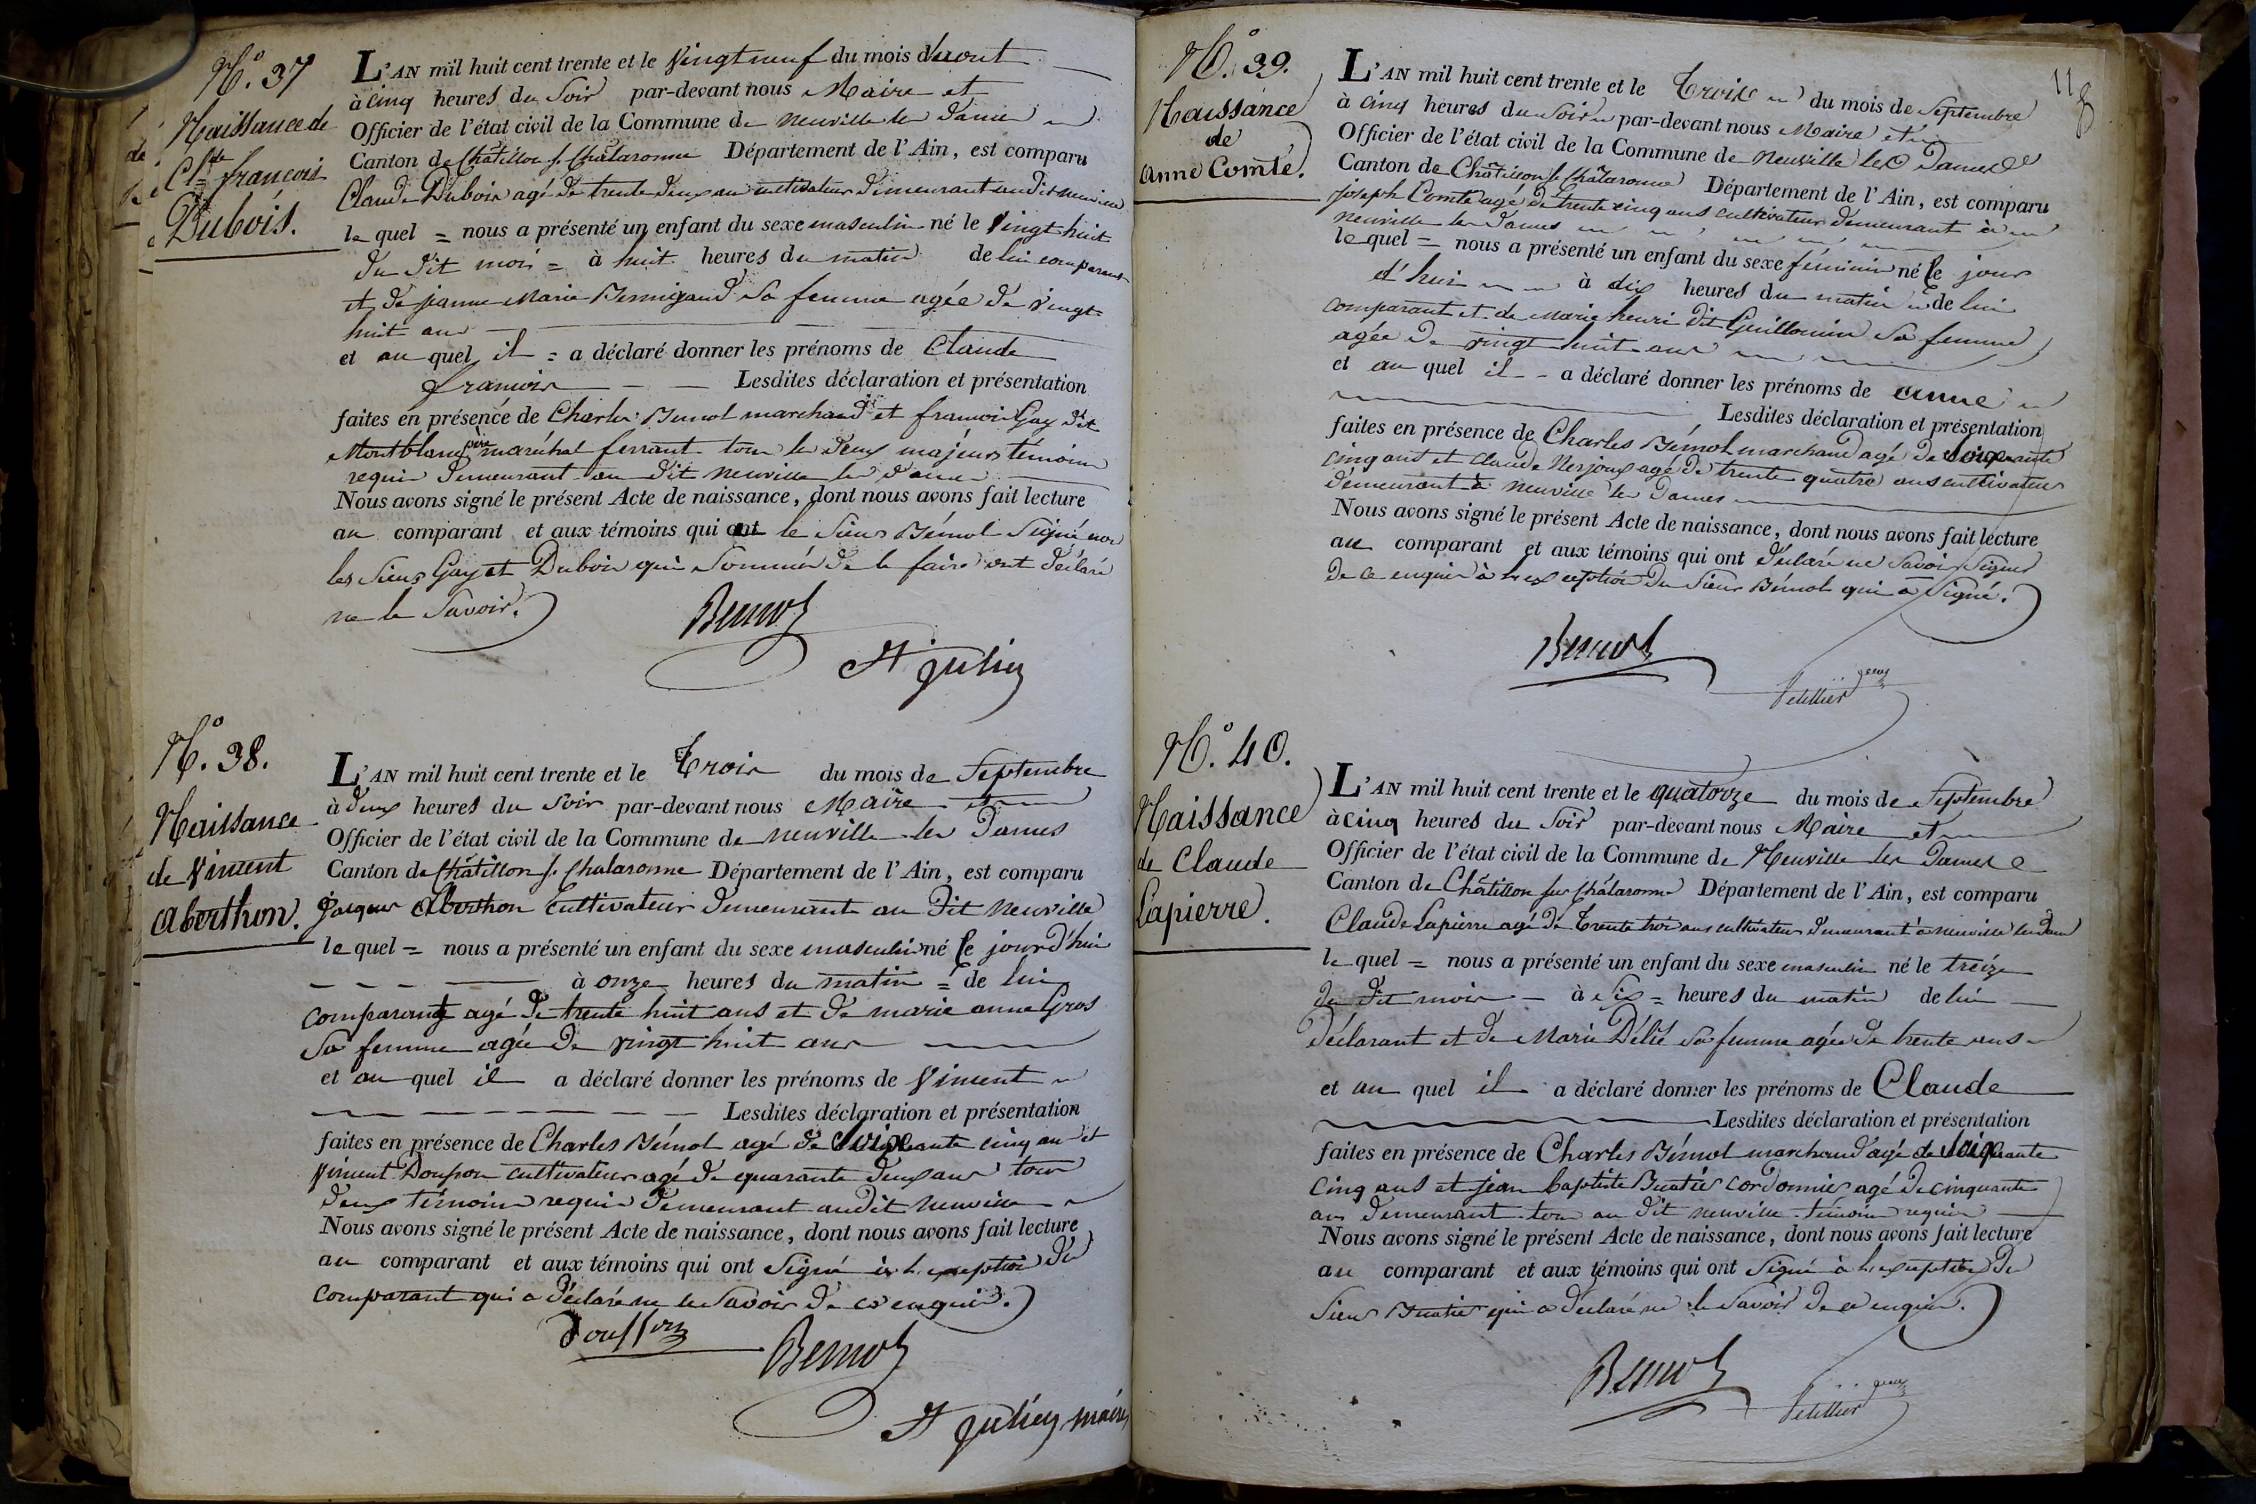 N.º 37
Naissance de
Cl.de françois
Dubois.
L'AN mil huit cent trente et le Vingt neuf du mois d'aout
à cinq heures du Soir par-devant nous Maire et
Officier de l'état civil de la Commune de neuville les dames
Canton de Châtillon s. Chalaronne Département de l'Ain, est comparu
Claude Dubois agé de trente deux ans cultivateur demeurant audit neuville
le quel = nous a présenté un enfant du sexe masculin né le Vingt huit
du dit mois = à huit heures du matin de lui comparant
et de jeanne Marie Bernigaud sa femme agée de vingt
huit ans
et au quel il = a déclaré donner les prénoms de Claude
françois Lesdites déclaration et présentation
faites en présence de Charles Bémol marchand et françois Gay dit
Montblanc père maréchal ferrant tous les deux majeurs témoins
requis demeurant au dit neuville les dames
Nous avons signé le présent Acte de naissance, dont nous avons fait lecture
au comparant et aux témoins qui ont le Sieur Bémol Signé non
les Sieurs Gay et Dubois qui Sommés de le faire ont déclaré
ne le Savoir.
Bemol
St julien
N.º 38.
Naissance
de Vincent
Aberthon.
L'AN mil huit cent trente et le Trois du mois de Septembre
à deux heures du Soir par-devant nous Maire et
Officier de l'état civil de la Commune de neuville les Dames
Canton de Châtillon s. Chalaronne Département de l'Ain, est comparu
Jacques Aberthon Cultivateur demeurant au dit neuville
le quel = nous a présenté un enfant du sexe masculin né le jourd'hui
à onze heures du matin = de lui
comparant agé de trente huit ans et de marie anne Gros
Sa femme agée de vingt huit ans
et au quel il a déclaré donner les prénoms de Vincent
Lesdites déclaration et présentation
faites en présence de Charles Bémol agé de Soixante cinq ans et
Vincent Douffon cultivateur agé de quarante deux ans tous
deux témoins requis demeurant audit neuville
Nous avons signé le présent Acte de naissance, dont nous avons fait lecture
au comparant et aux témoins qui ont Signé à l'exception du
comparant qui a déclaré ne le Savoir de ce enquis.
Douffon
Bemol
St julien maire
118
N.º 39.
Naissance
de
Anne Comte.
L'AN mil huit cent trente et le Trois du mois de Septembre
à cinq heures du Soir par-devant nous Maire et
Officier de l'état civil de la Commune de Neuville les Dames
Canton de Châtillon s. Chalaronne Département de l'Ain, est comparu
joseph Comte agé de trente cinq ans cultivateur demeurant à
neuville les Dames
le quel = nous a présenté un enfant du sexe féminin né le jour
d'hui à dix heures du matin de lui
comparant et de Marie henri dit Guillomin sa femme
agée de vingt huit ans
et au quel il a déclaré donner les prénoms de anne
Lesdites déclaration et présentation
faites en présence de Charles Bémol marchand agé de Soixante
cinq ans et Claude Nesjoux agé de trente quatre ans cultivateur
demeurant à Neuville les Dames
Nous avons signé le présent Acte de naissance, dont nous avons fait lecture
au comparant et aux témoins qui ont déclaré ne Savoir Signer
de ce enquis à l'exception du Sieur Bémol qui a Signé.
Bemol
N.º 40.
Naissance
de Claude
Lapierre.
L'AN mil huit cent trente et le quatorze du mois de Septembre
à cinq heures du Soir par-devant nous Maire et
Officier de l'état civil de la Commune de Neuville les Dames
Canton de Châtillon sur Châlaronne Département de l'Ain, est comparu
Claude Lapierre agé de Trente trois ans cultivateur demeurant à neuville les dames
le quel = nous a présenté un enfant du sexe masculin né le treize
du dit mois à Six = heures du matin de lui
déclarant et de Marie Délié sa femme agée de trente ans
et au quel il a déclaré donner les prénoms de Claude
Lesdites déclaration et présentation
faites en présence de Charles Bémol marchand agé de Soixante
cinq ans et jean baptiste Buatier cordonnier agé de cinquante
ans demeurant tous au dit neuville témoins requis
Nous avons signé le présent Acte de naissance, dont nous avons fait lecture
au comparant et aux témoins qui ont Signé à l'exception du
Sieur Buatier qui a déclaré ne le Savoir de ce enquis.
Bemol